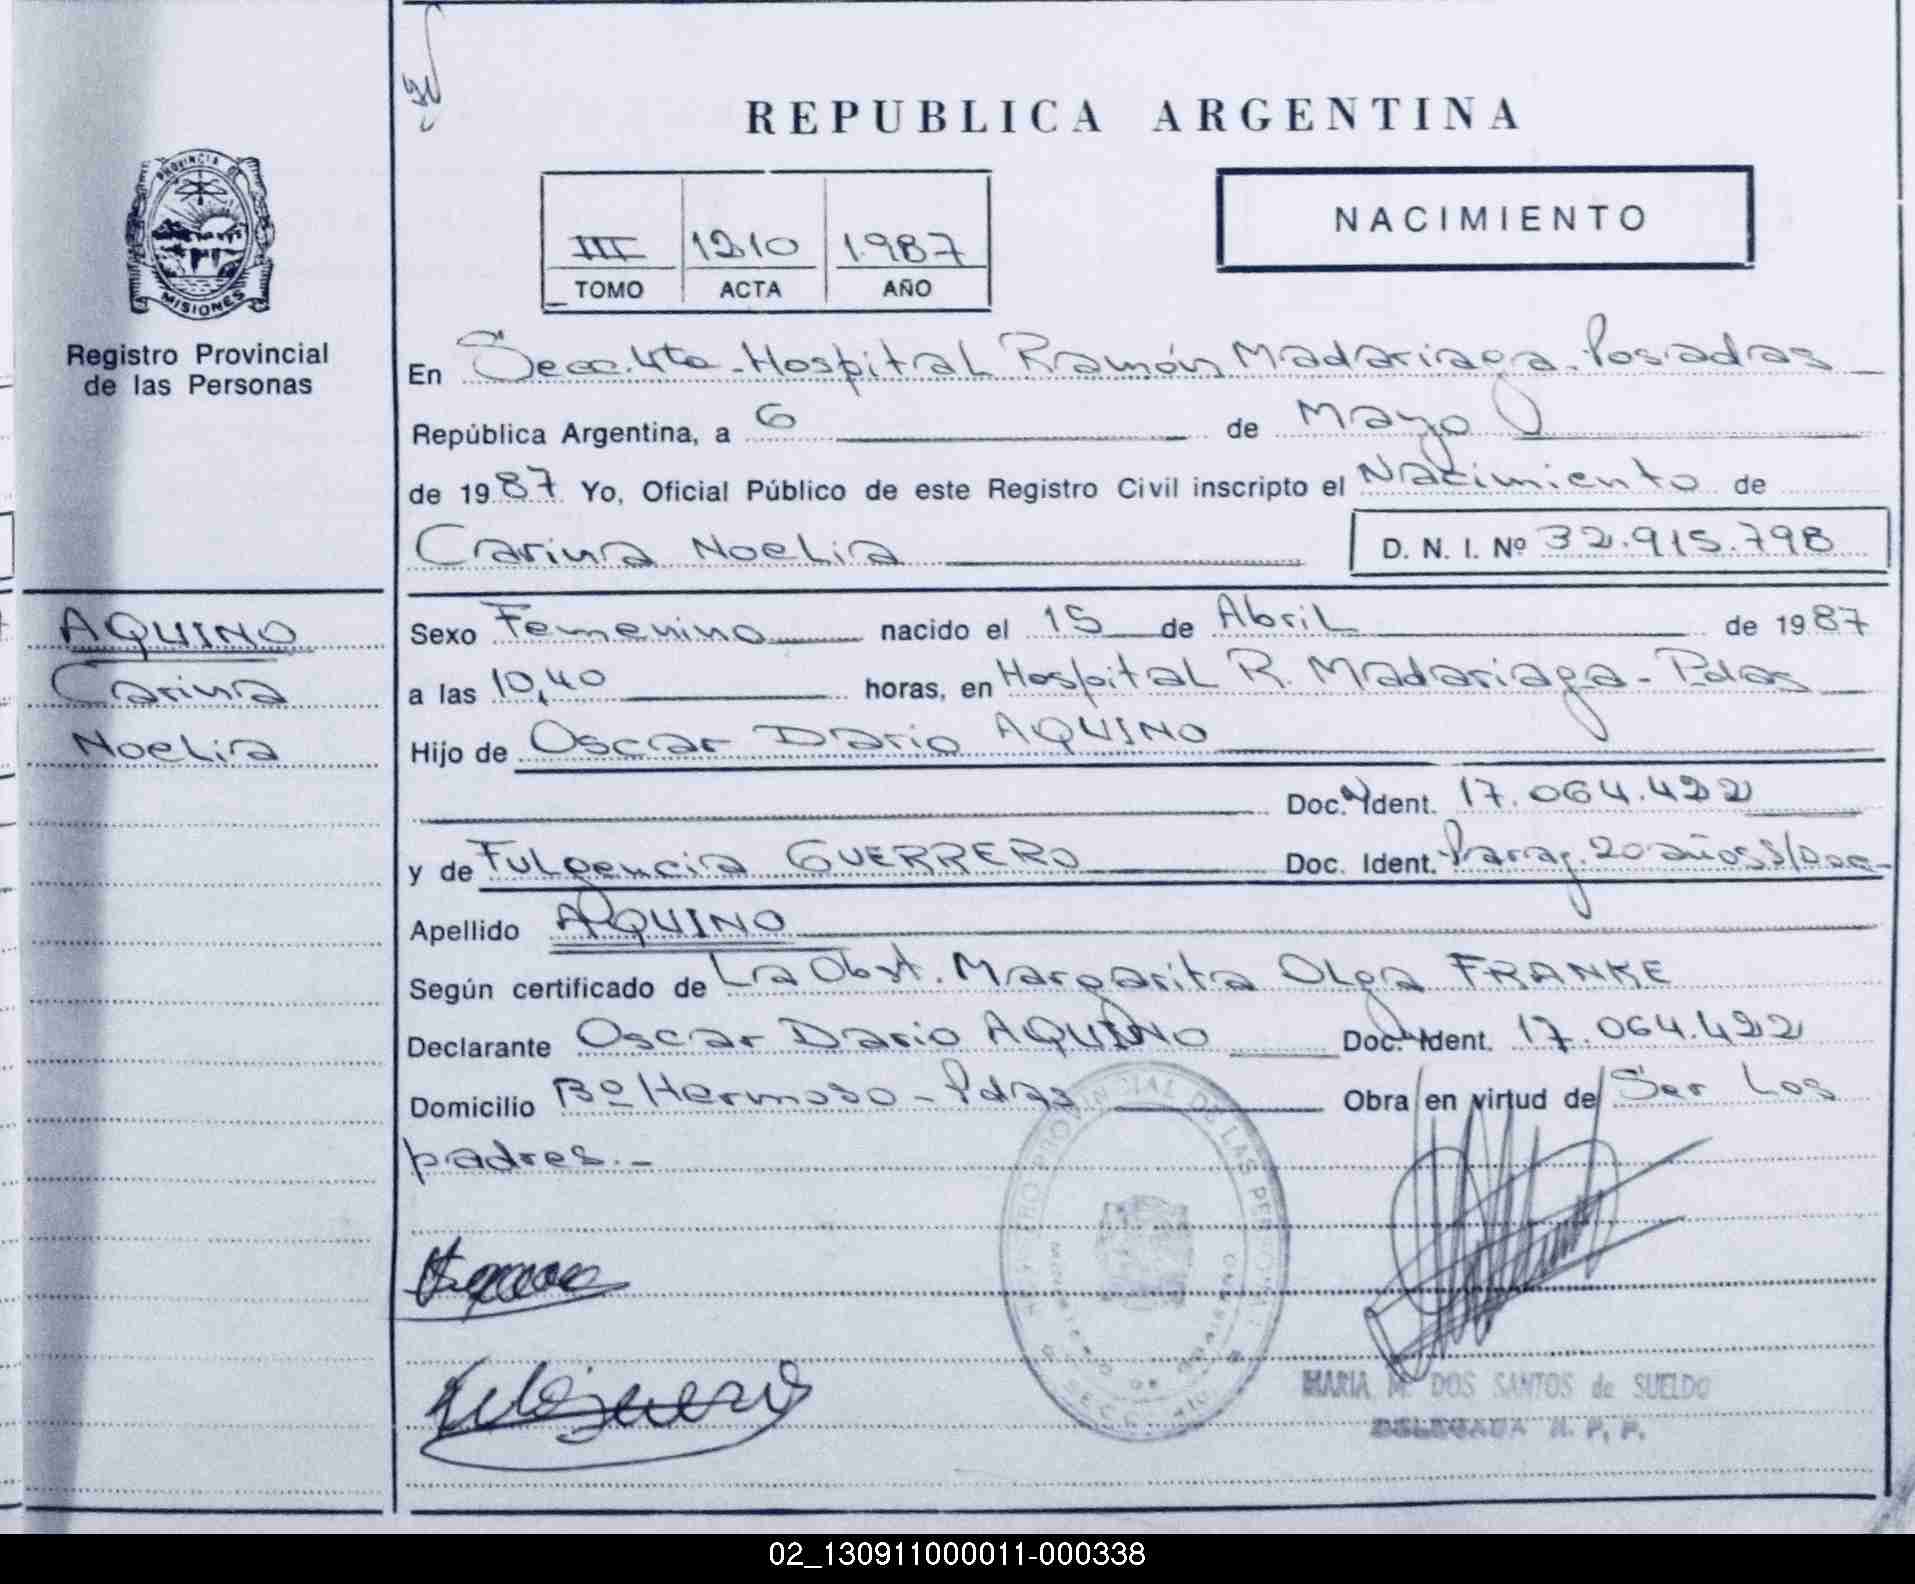 REPUBLICA ARGENTINA
PROVINCIA DE
MISIONES
Registro Provincial
de las Personas
III 1210 1.987
TOMO ACTA AÑO
NACIMIENTO
En Secc. 4ta - Hospital Ramón Madariaga. Posadas
República Argentina, a 6 de Mayo
de 1987 Yo, Oficial Público de este Registro Civil inscripto el Nacimiento de
Carina Noelia D. N. I. Nº 32.915.798
AQUINO
Carina
Noelia
Sexo Femenino nacido el 15 de Abril de 1987
a las 10,40 horas, en Hospital R. Madariaga - Pdas
Hijo de Oscar Dario AQUINO
Doc. Ident. 17.064.422
y de Fulgencia GUERRERO Doc. Ident. Parag. 20 años S/Doc-
Apellido AQUINO
Según certificado de La Obst. Margarita Olga FRANKE
Declarante Oscar Dario AQUINO Doc. Ident. 17.064.422
Domicilio Bº Hermoso - Pdas Obra en virtud de Ser Los
padres.-
PROVINCIAL DE LAS PERSONAS
MARIA M. DOS SANTOS de SUELDO
DELEGADA R. P. P.
02_130911000011-000338